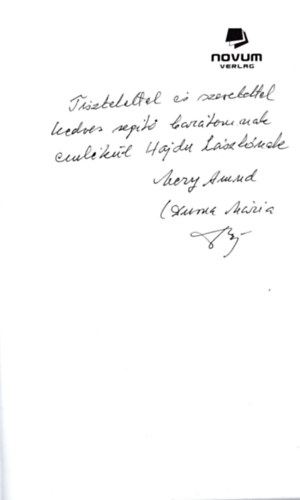 novum
VERLAG
Tisztelettel és szeretettel
kedves segítő barátomnak
emlékül Hajdu Lászlónak
Mery Amud
Mária